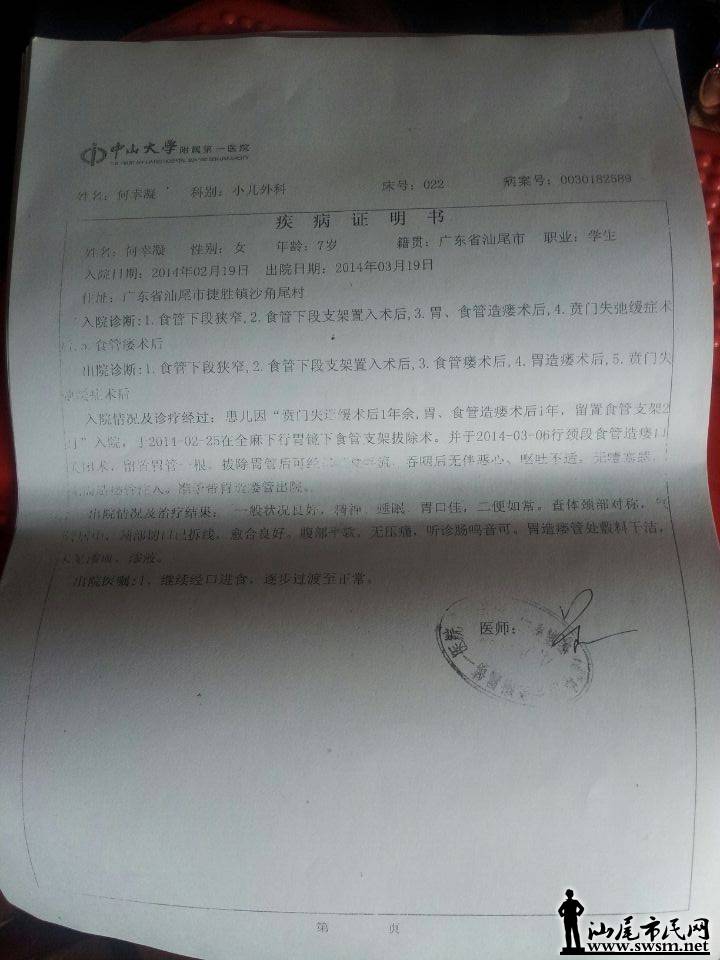 中山大学附属第一医院
姓名：何幸凝 科别：小儿外科 床号：022 病案号：0030182589
疾病证明书
姓名：何幸凝 性别：女 年龄：7岁 籍贯：广东省汕尾市 职业：学生
入院日期：2014年02月19日 出院日期：2014年03月19日
住址：广东省汕尾市捷胜镇沙角尾村
入院诊断：1.食管下段狭窄,2.食管下段支架置入术后,3.胃、食管造瘘术后,4.贲门失弛缓症术
后,5.食管瘘术后
出院诊断：1.食管下段狭窄,2.食管下段支架置入术后,3.食管瘘术后,4.胃造瘘术后,5.贲门失
弛缓症术后
入院情况及诊疗经过：患儿因“贲门失迟缓术后1年余,胃、食管造瘘术后1年，留置食管支架2
”入院，于2014-02-25在全麻下行胃镜下食管支架拔除术。并于2014-03-06行颈段食管造瘘口
术，留置胃管一根。拔除胃管后可经 吞咽后无伴恶心、呕吐不适，无噎塞感，
出院。
出院情况及治疗结果：一般状况良好，精神、睡眠、胃口佳，二便如常。查体颈部对称，气
管居中，颈部切口已拆线，愈合良好。腹部平软，无压痛，听诊肠鸣音可。胃造瘘管处敷料干洁，
未见渗血、渗液。
出院医嘱：1、继续经口进食，逐步过渡至正常。
医师：
第 页
汕尾市民网
www.swsm.net